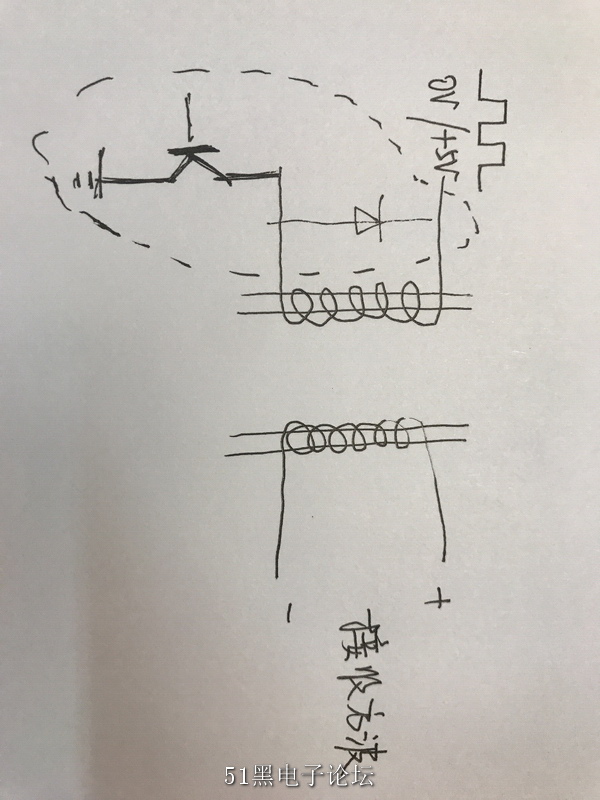 0V/+5V
- +
接收方波
51黑电子论坛